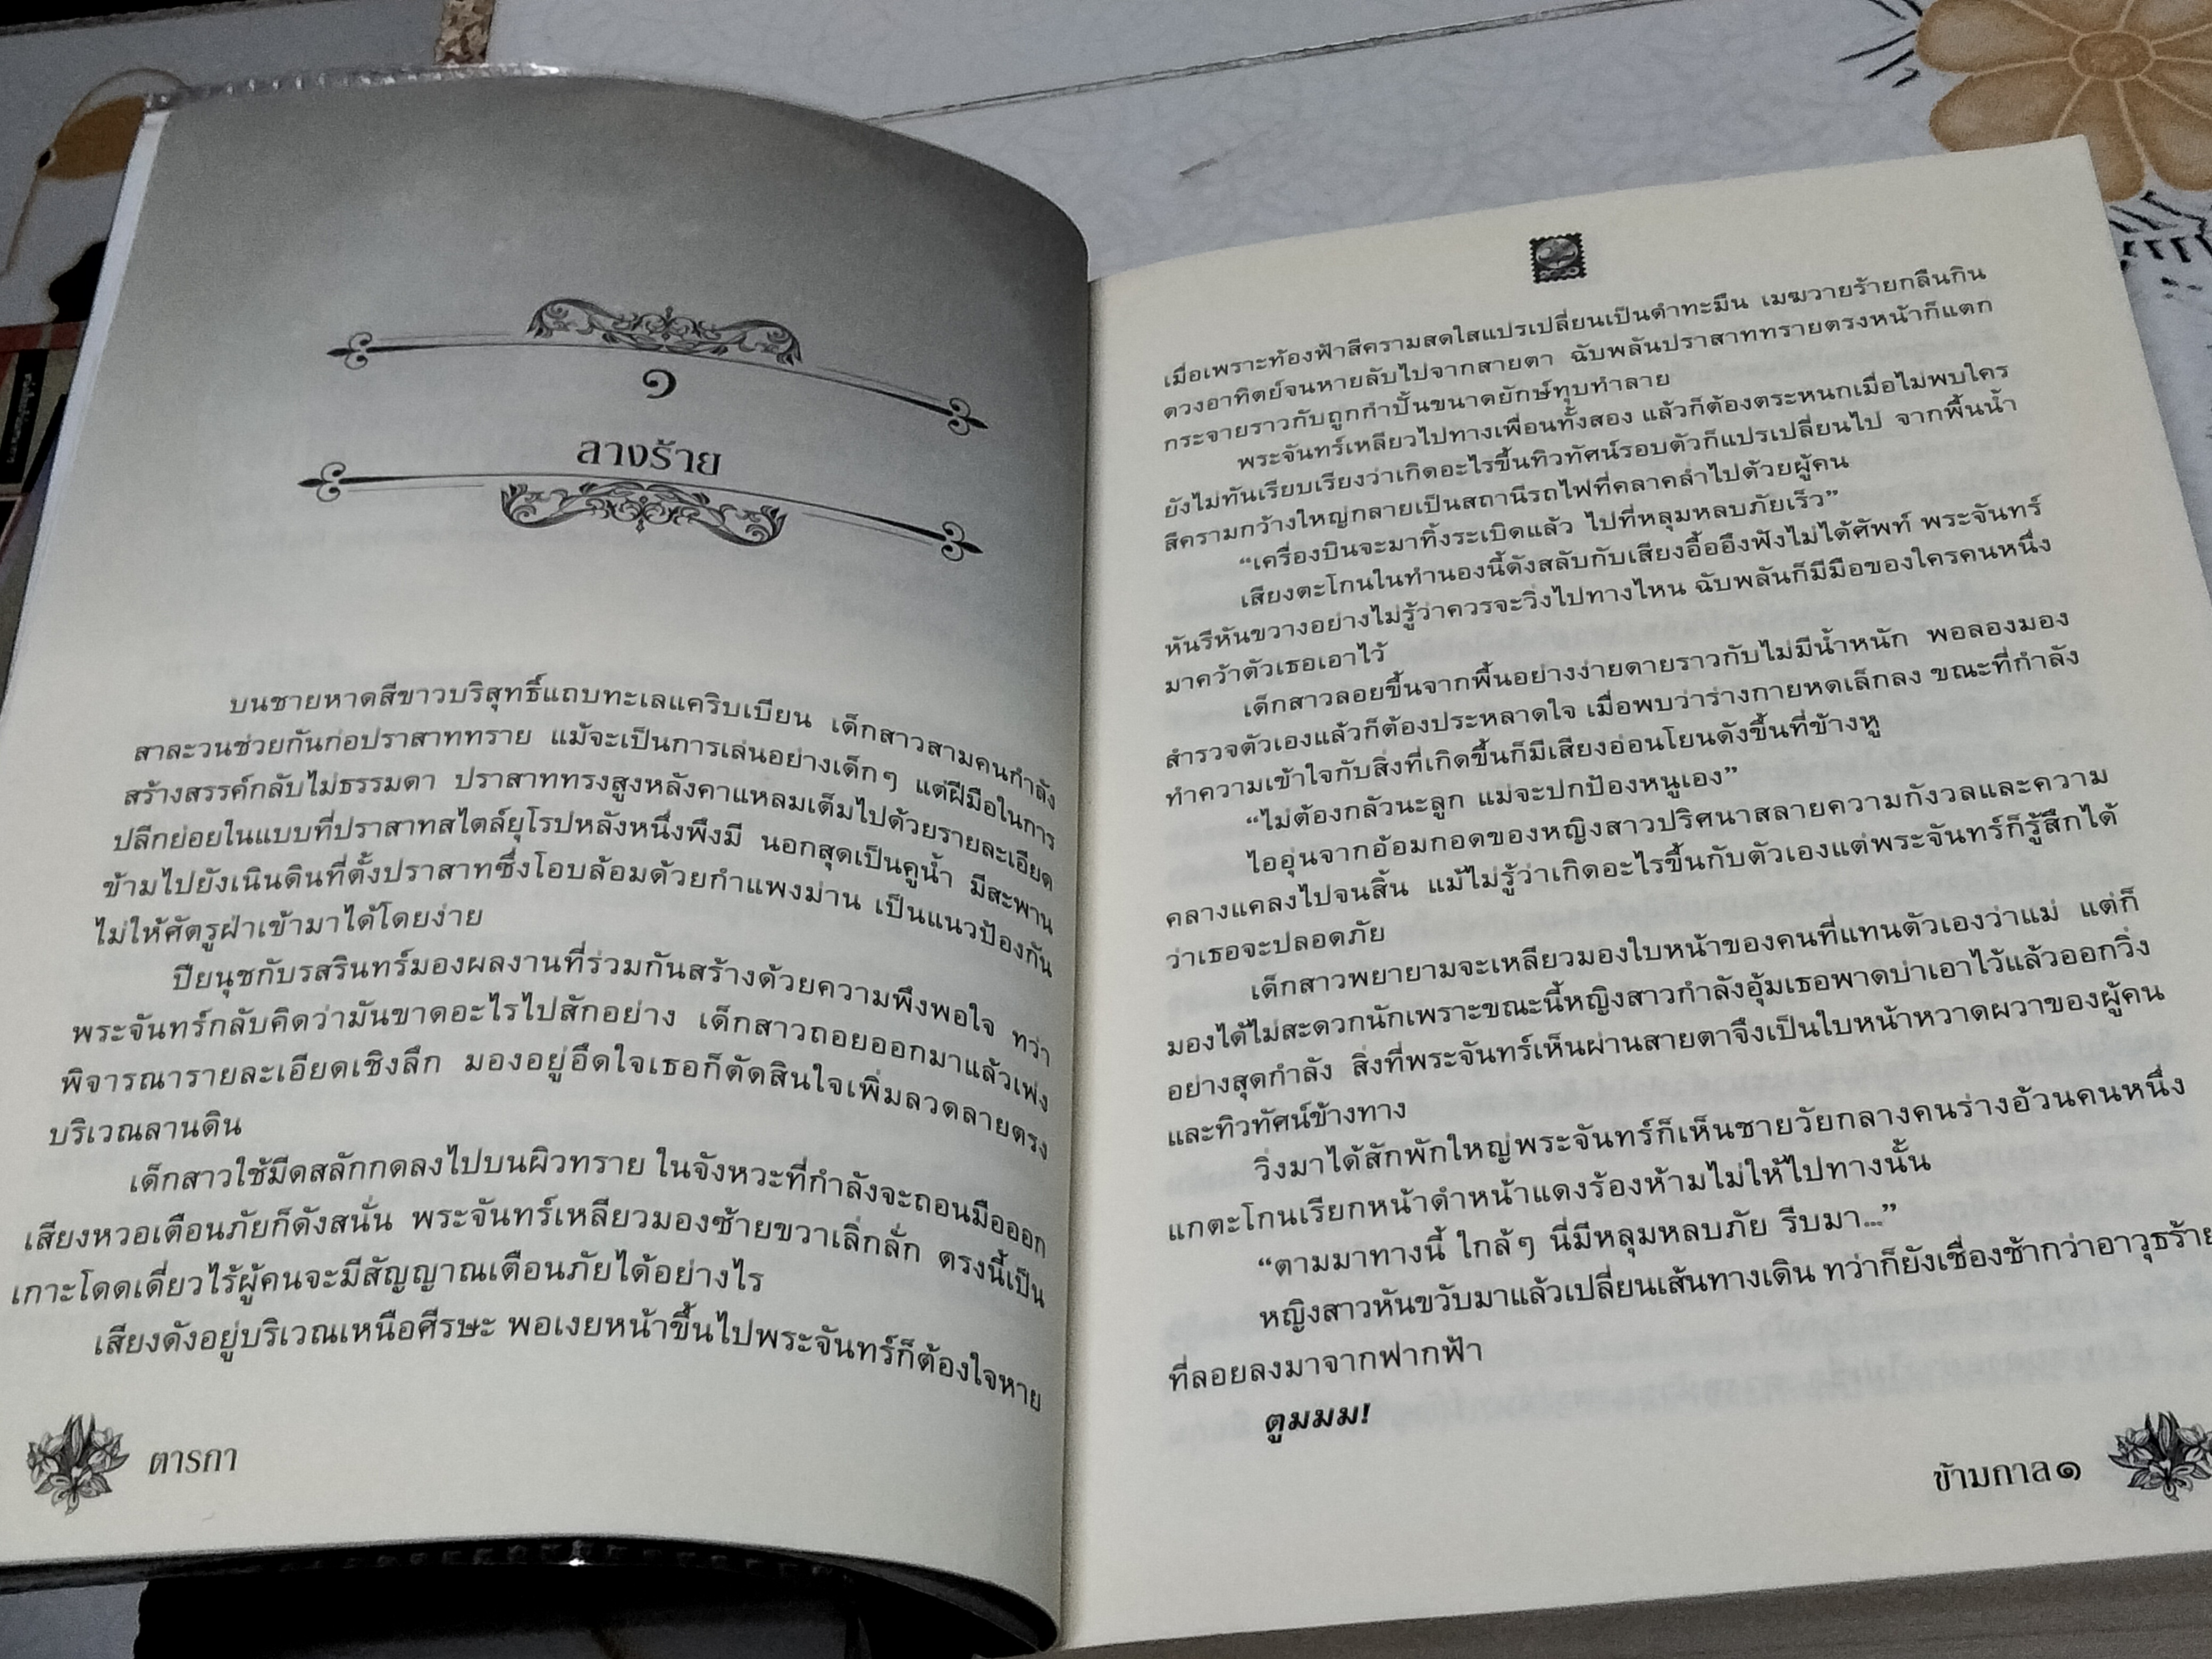 ๑
ลางร้าย
บนชายหาดสีขาวบริสุทธิ์แถบทะเลแคริบเบียน เด็กสาวสามคนกำลัง
สาละวนช่วยกันก่อปราสาททราย แม้จะเป็นการเล่นอย่างเด็กๆ แต่ฝีมือในการ
สร้างสรรค์กลับไม่ธรรมดา ปราสาททรงสูงหลังคาแหลมเต็มไปด้วยรายละเอียด
ปลีกย่อยในแบบที่ปราสาทสไตล์ยุโรปหลังหนึ่งพึงมี นอกสุดเป็นคูน้ำ มีสะพาน
ข้ามไปยังเนินดินที่ตั้งปราสาทซึ่งโอบล้อมด้วยกำแพงม่าน เป็นแนวป้องกัน
ไม่ให้ศัตรูฝ่าเข้ามาได้โดยง่าย
ปิยนุชกับรสรินทร์มองผลงานที่ร่วมกันสร้างด้วยความพึงพอใจ ทว่า
พระจันทร์กลับคิดว่ามันขาดอะไรไปสักอย่าง เด็กสาวถอยออกมาแล้วเพ่ง
พิจารณารายละเอียดเชิงลึก มองอยู่อึดใจเธอก็ตัดสินใจเพิ่มลวดลายตรง
บริเวณลานดิน
เด็กสาวใช้มีดสลักกดลงไปบนผิวทราย ในจังหวะที่กำลังจะถอนมือออก
เสียงหวอเตือนภัยก็ดังสนั่น พระจันทร์เหลียวมองซ้ายขวาเลิ่กลั่ก ตรงนี้เป็น
เกาะโดดเดี่ยวไร้ผู้คนจะมีสัญญาณเตือนภัยได้อย่างไร
เสียงดังอยู่บริเวณเหนือศีรษะ พอเงยหน้าขึ้นไปพระจันทร์ก็ต้องใจหาย
ดารกา
เมื่อเพราะท้องฟ้าสีครามสดใสแปรเปลี่ยนเป็นดำทะมึน เมฆวายร้ายกลืนกิน
ดวงอาทิตย์จนหายลับไปจากสายตา ฉับพลันปราสาททรายตรงหน้าก็แตก
กระจายราวกับถูกกำปั้นขนาดยักษ์ทุบทำลาย
พระจันทร์เหลียวไปทางเพื่อนทั้งสอง แล้วก็ต้องตระหนกเมื่อไม่พบใคร
ยังไม่ทันเรียบเรียงว่าเกิดอะไรขึ้นทิวทัศน์รอบตัวก็แปรเปลี่ยนไป จากพื้นน้ำ
สีครามกว้างใหญ่กลายเป็นสถานีรถไฟที่คลาคล่ำไปด้วยผู้คน
“เครื่องบินจะมาทิ้งระเบิดแล้ว ไปที่หลุมหลบภัยเร็ว”
เสียงตะโกนในทำนองนี้ดังสลับกับเสียงอื้ออึงฟังไม่ได้ศัพท์ พระจันทร์
หันรีหันขวางอย่างไม่รู้ว่าควรจะวิ่งไปทางไหน ฉับพลันก็มีมือของใครคนหนึ่ง
มาคว้าตัวเธอเอาไว้
เด็กสาวลอยขึ้นจากพื้นอย่างง่ายดายราวกับไม่มีน้ำหนัก พอลองมอง
สำรวจตัวเองแล้วก็ต้องประหลาดใจ เมื่อพบว่าร่างกายหดเล็กลง ขณะที่กำลัง
ทำความเข้าใจกับสิ่งที่เกิดขึ้นก็มีเสียงอ่อนโยนดังขึ้นที่ข้างหู
“ไม่ต้องกลัวนะลูก แม่จะปกป้องหนูเอง”
ไออุ่นจากอ้อมกอดของหญิงสาวปริศนาสลายความกังวลและความ
คลางแคลงไปจนสิ้น แม้ไม่รู้ว่าเกิดอะไรขึ้นกับตัวเองแต่พระจันทร์ก็รู้สึกได้
ว่าเธอจะปลอดภัย
เด็กสาวพยายามจะเหลียวมองใบหน้าของคนที่แทนตัวเองว่าแม่ แต่ก็
มองได้ไม่สะดวกนักเพราะขณะนี้หญิงสาวกำลังอุ้มเธอพาดบ่าเอาไว้แล้วออกวิ่ง
อย่างสุดกำลัง สิ่งที่พระจันทร์เห็นผ่านสายตาจึงเป็นใบหน้าหวาดผวาของผู้คน
และทิวทัศน์ข้างทาง
วิ่งมาได้สักพักใหญ่พระจันทร์ก็เห็นชายวัยกลางคนร่างอ้วนคนหนึ่ง
แกตะโกนเรียกหน้าดำหน้าแดงร้องห้ามไม่ให้ไปทางนั้น
“ตามมาทางนี้ ใกล้ๆ นี่มีหลุมหลบภัย รีบมา...”
หญิงสาวหันขวับมาแล้วเปลี่ยนเส้นทางเดิน ทว่าก็ยังเชื่องช้ากว่าอาวุธร้าย
ที่ลอยลงมาจากฟากฟ้า
ตูมมม!
ข้ามกาล๑